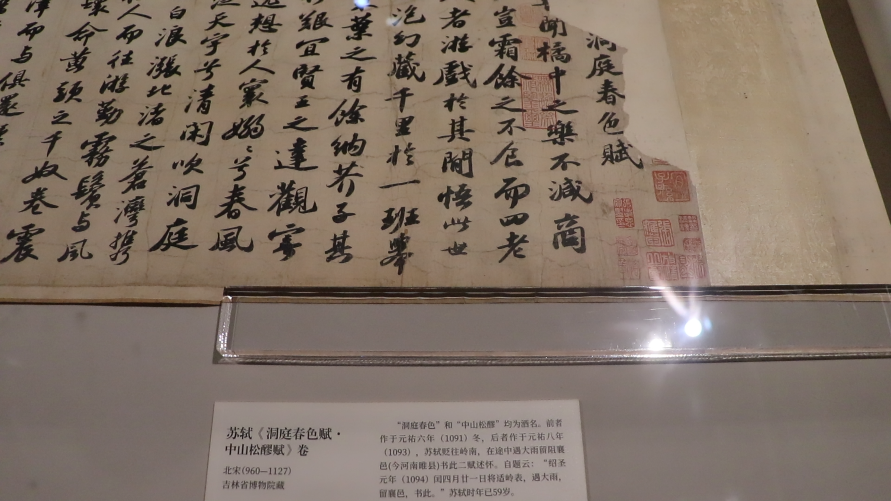 洞庭春色賦
聞橘中之樂不減商
豈霜餘之不食而四老
者游戲於其間悟此世
泡幻藏千里於一班舉
葉之有餘納芥子其
艱宜賢王之達觀寄
想於人寰嫋〻兮春風
天宇兮清閑吹洞庭
白浪漲北渚之蒼灣攜
人而往游勤霧鬢与風
鬟命黃頭之千奴卷震
澤而与俱還
苏轼《洞庭春色赋·
中山松醪赋》卷
北宋(960—1127)
吉林省博物院藏
“洞庭春色”和“中山松醪”均为酒名。前者
作于元祐六年(1091)冬,后者作于元祐八年
(1093),苏轼贬往岭南,在途中遇大雨留阻襄
邑(今河南睢县)书此二赋述怀。自题云:“绍圣
元年(1094)闰四月廿一日将适岭表,遇大雨,
留襄邑,书此。”苏轼时年已59岁。